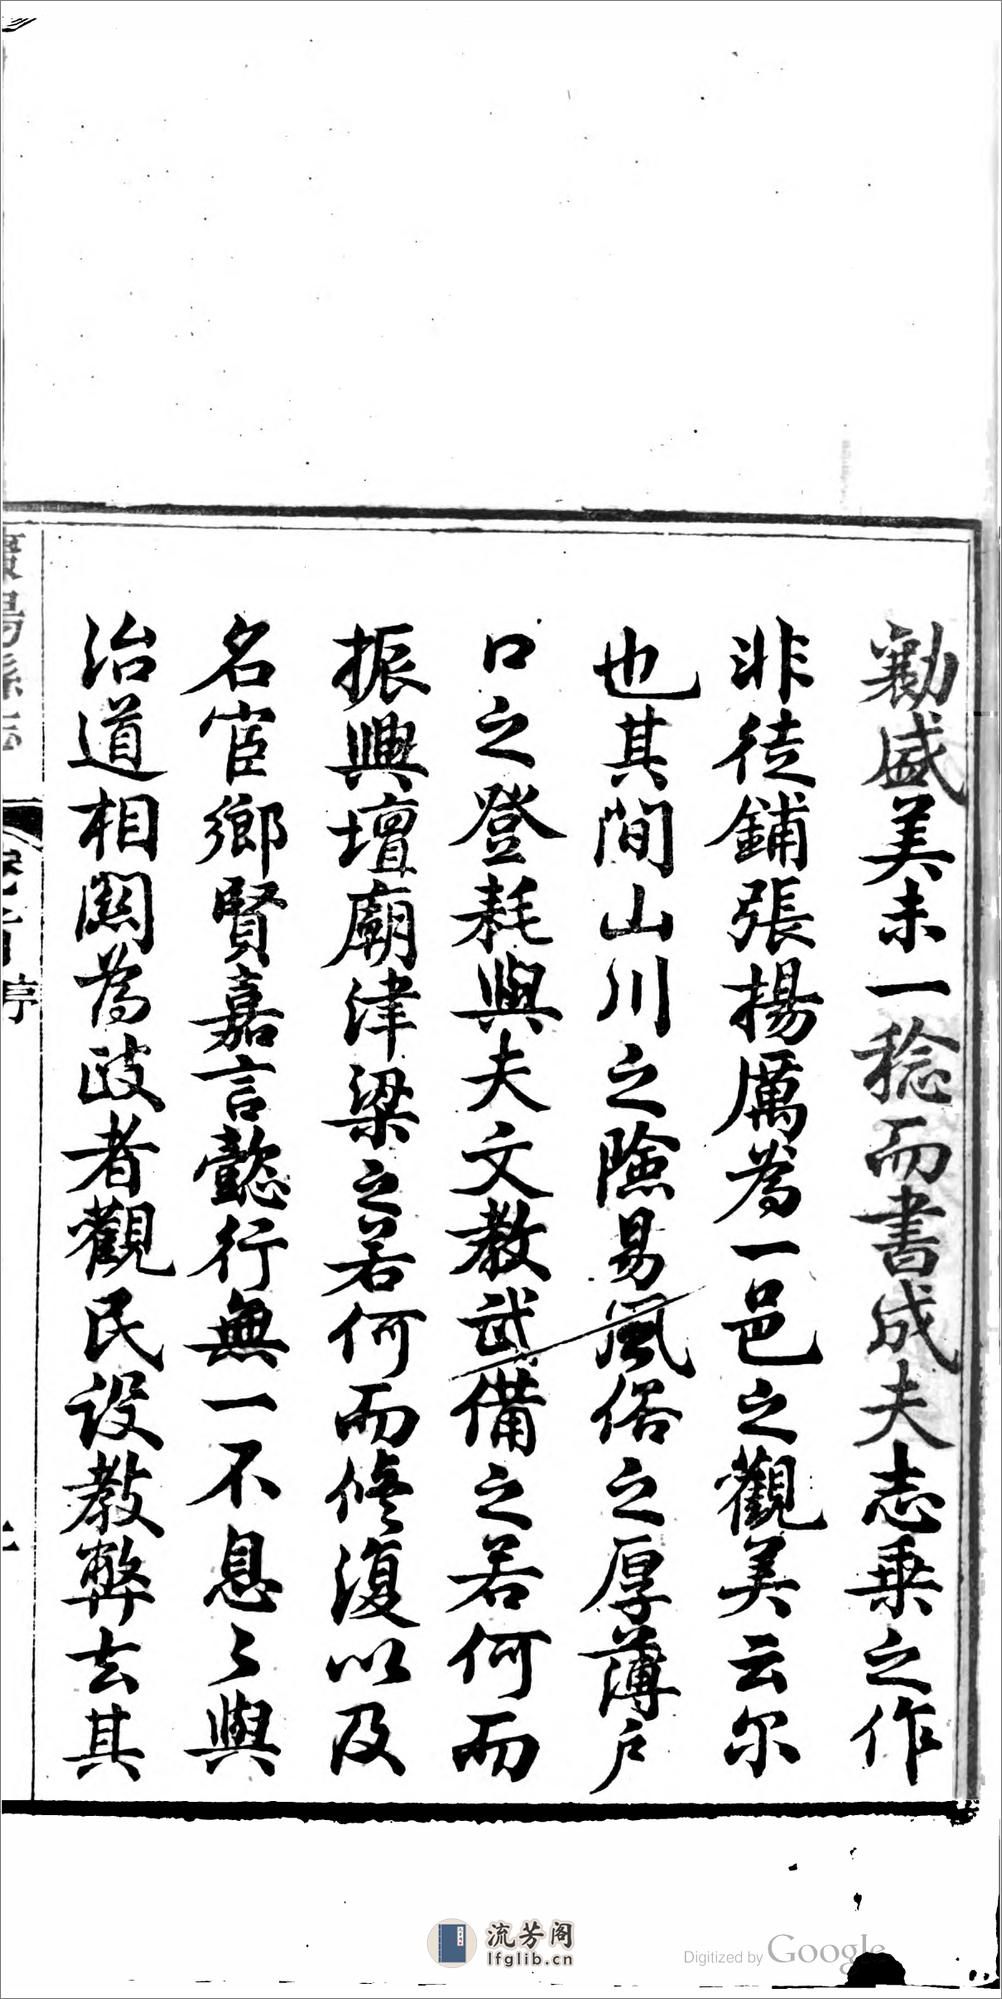 勷盛美未一稔而書成夫志乗之作
非徒鋪張揚厲為一邑之觀美云尔
也其間山川之險易風俗之厚薄户
口之登耗與夫文教武備之若何而
振興壇廟津梁之若何而修復以及
名宦鄉賢嘉言懿行無一不息〻與
治道相関為政者觀民設教弊去其
陽縣志
卷首
序
流芳阁
lfglib.cn
Digitized by Google